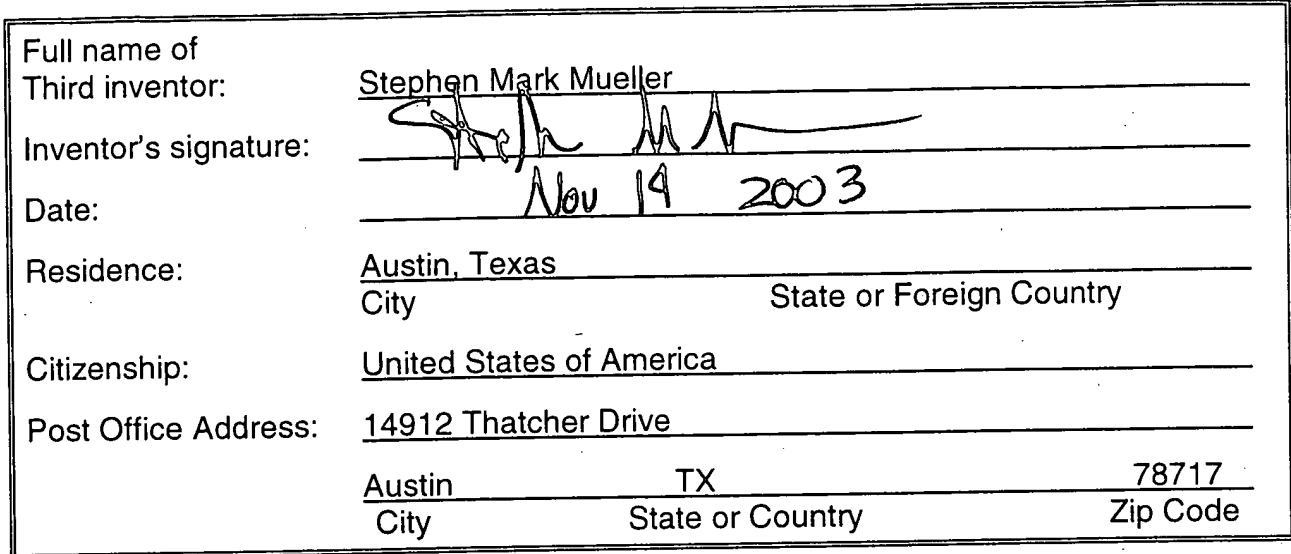 Full name of
Third inventor: Stephen Mark Mueller
Inventor's signature:
Date: Nov 14 2003
Residence: Austin, Texas
City State or Foreign Country
Citizenship: United States of America
Post Office Address: 14912 Thatcher Drive
Austin TX 78717
City State or Country Zip Code